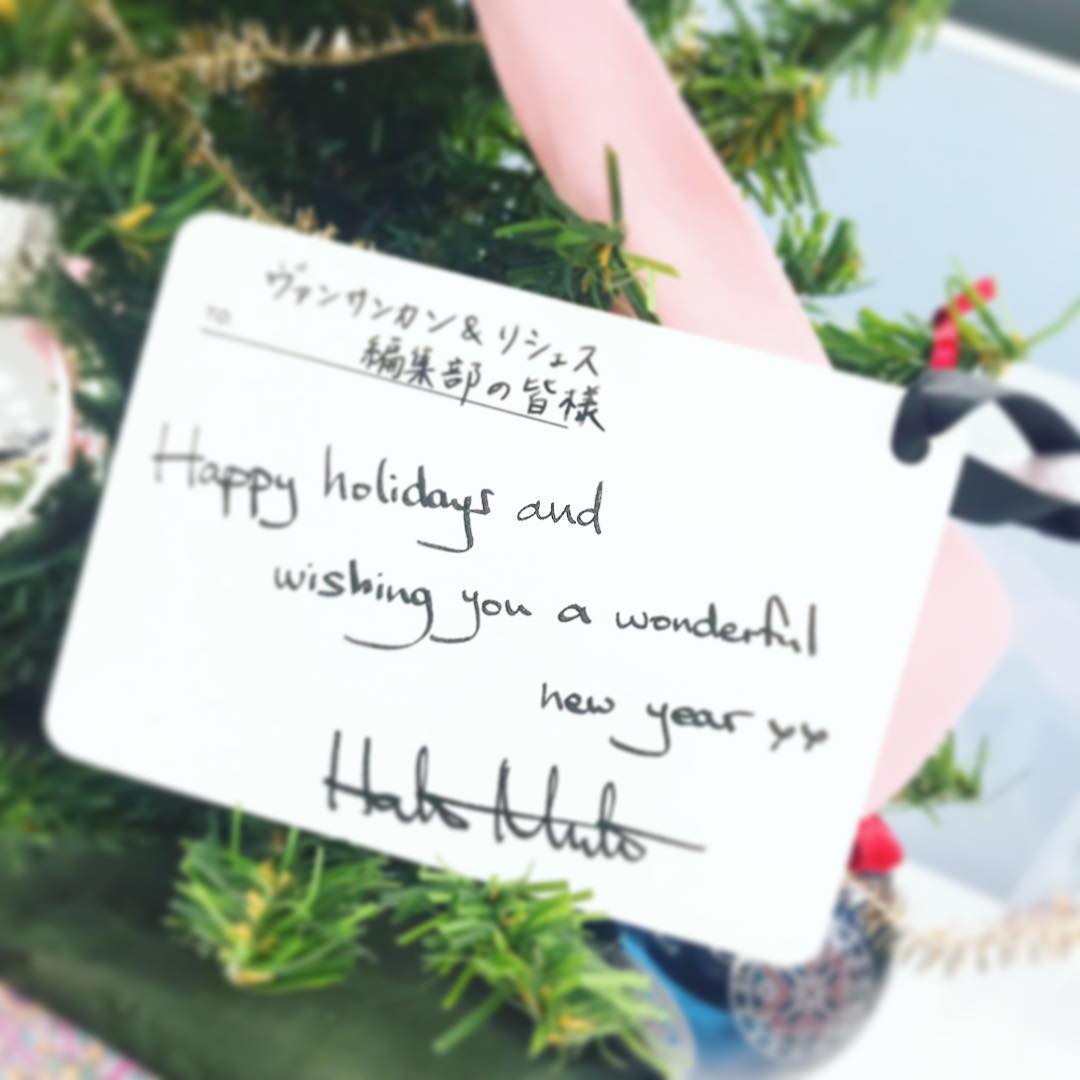 ヴァンサンカン & リシェス
TO:
編集部の皆様
Happy holidays and
wishing you a wonderful
new year xx
Muto